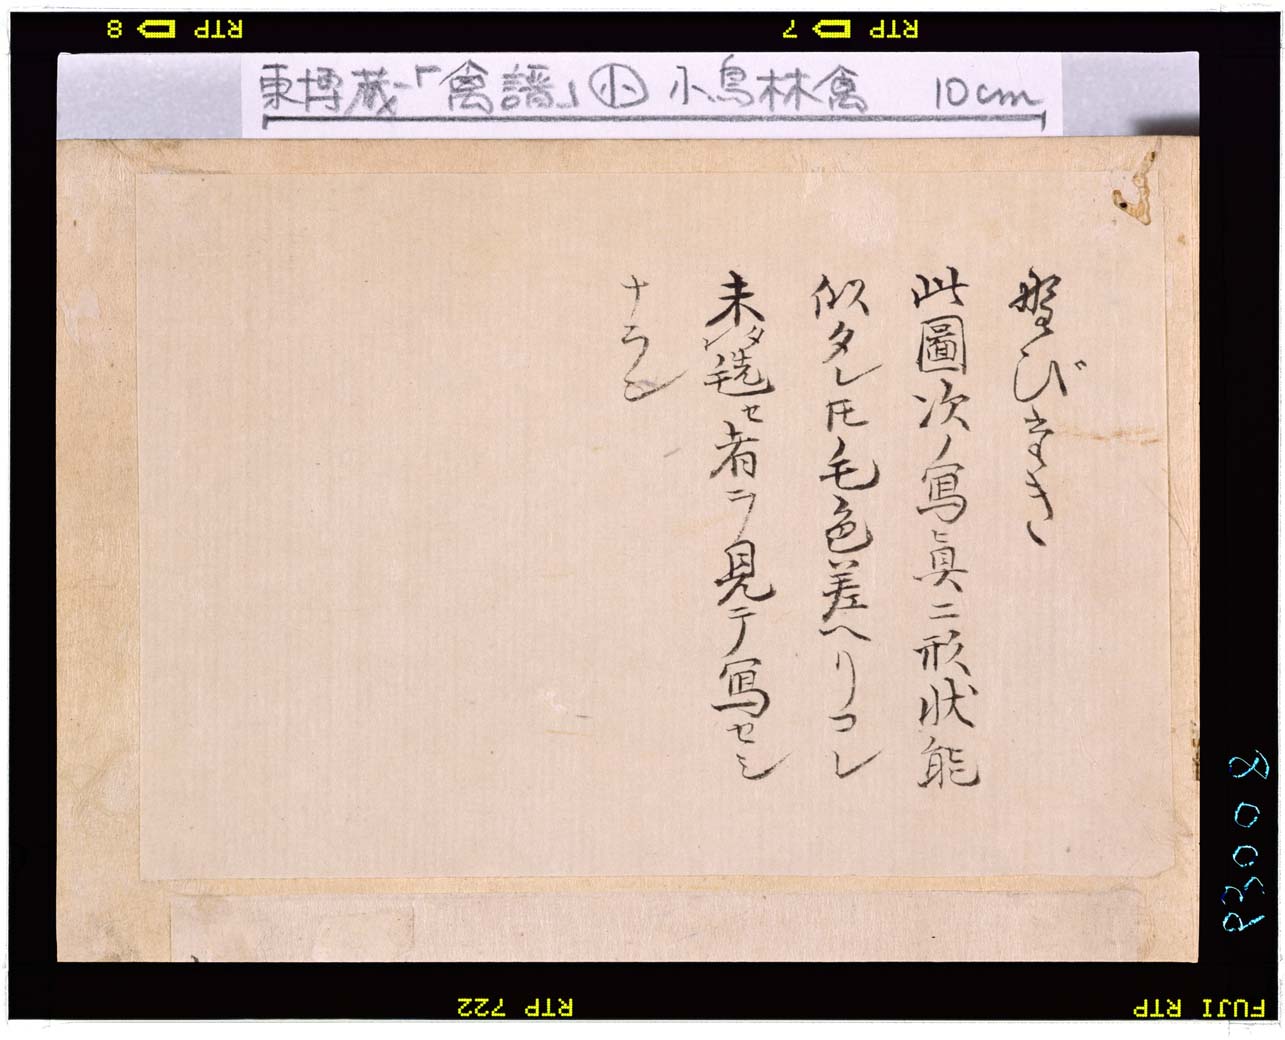 RTP 7
RTP 8
東博蔵-「禽譜」㊉小 小鳥林禽 10cm
野びたき
此圖次ノ寫眞ニ形状能
似タレ𪜈毛色差ヘリコレ
未タ毨セ者ヲ見テ寫セシ
ナラン
P3008
FUJI RTP
RTP 722